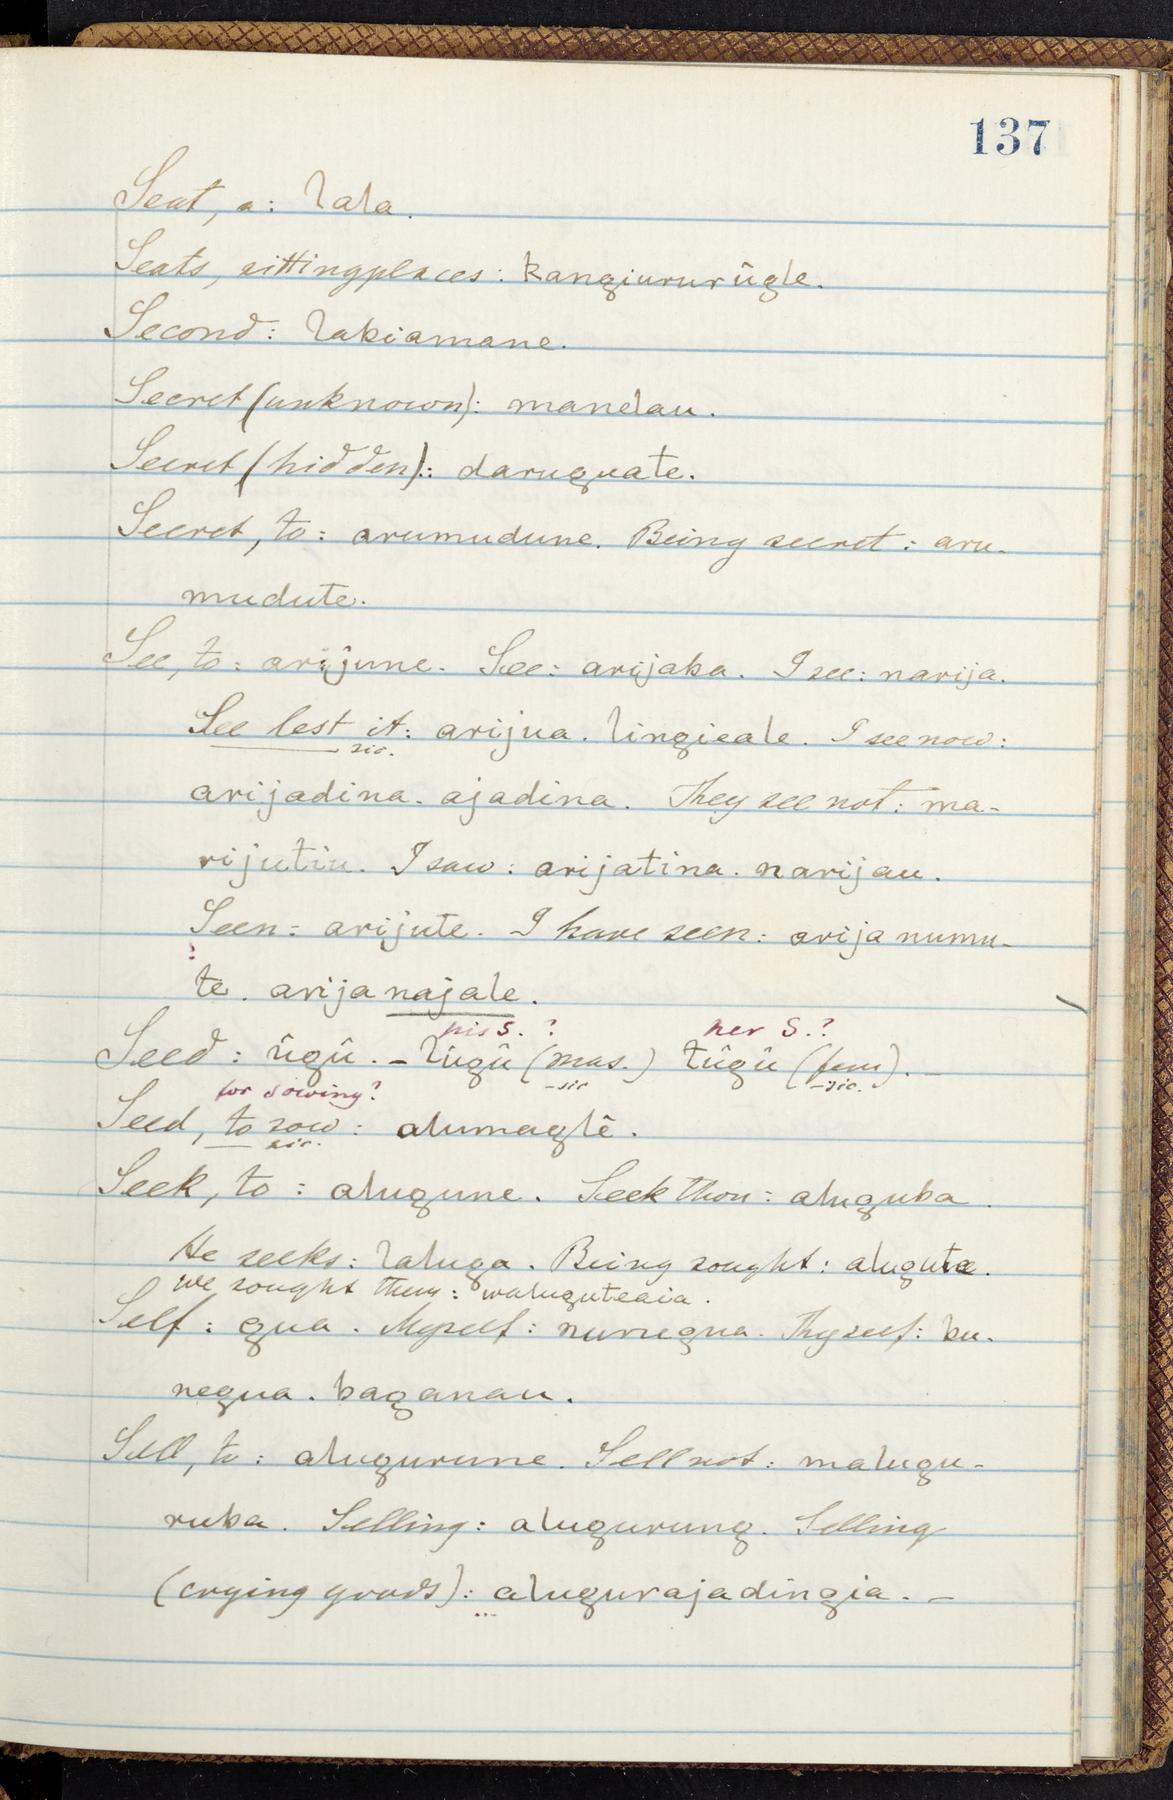 137
Seat, a: lala.
Seats, sittingplaces: kangiururûgle.
Second: lakiamane.
Secret (unknown): manelau.
Secret (hidden): daruguate.
Secret, to: arumudune. Being secret: aru-
mudute.
See, to: arijune. See: arijaba. I see: narija.
See lest it: arijua. lingieale. I see now:
sic.
arijadina. ajadina. They see not: ma-
rijutiu. I saw: arijatina. narijau.
Seen: arijute. I have seen: arija numu-
te. arija najale.
his S. ? her S.?
Seed: ûgû. - lûgû (mas.) tûgû (fem). -
sic sic.
for sowing?
Seed, to sow: alumaglê.
sic.
Seek, to: alugune. Seek thou: aluguba.
He seeks: laluga. Being sought: alugute.
We sought them: waluguteaia.
Self: gua. Myself: nuruegua. Thyself: bu-
negua. baganau.
Sell, to: alugurune. Sell not: malugu-
ruba. Selling: alugurung. Selling
(crying goods): alugurajadingia. -